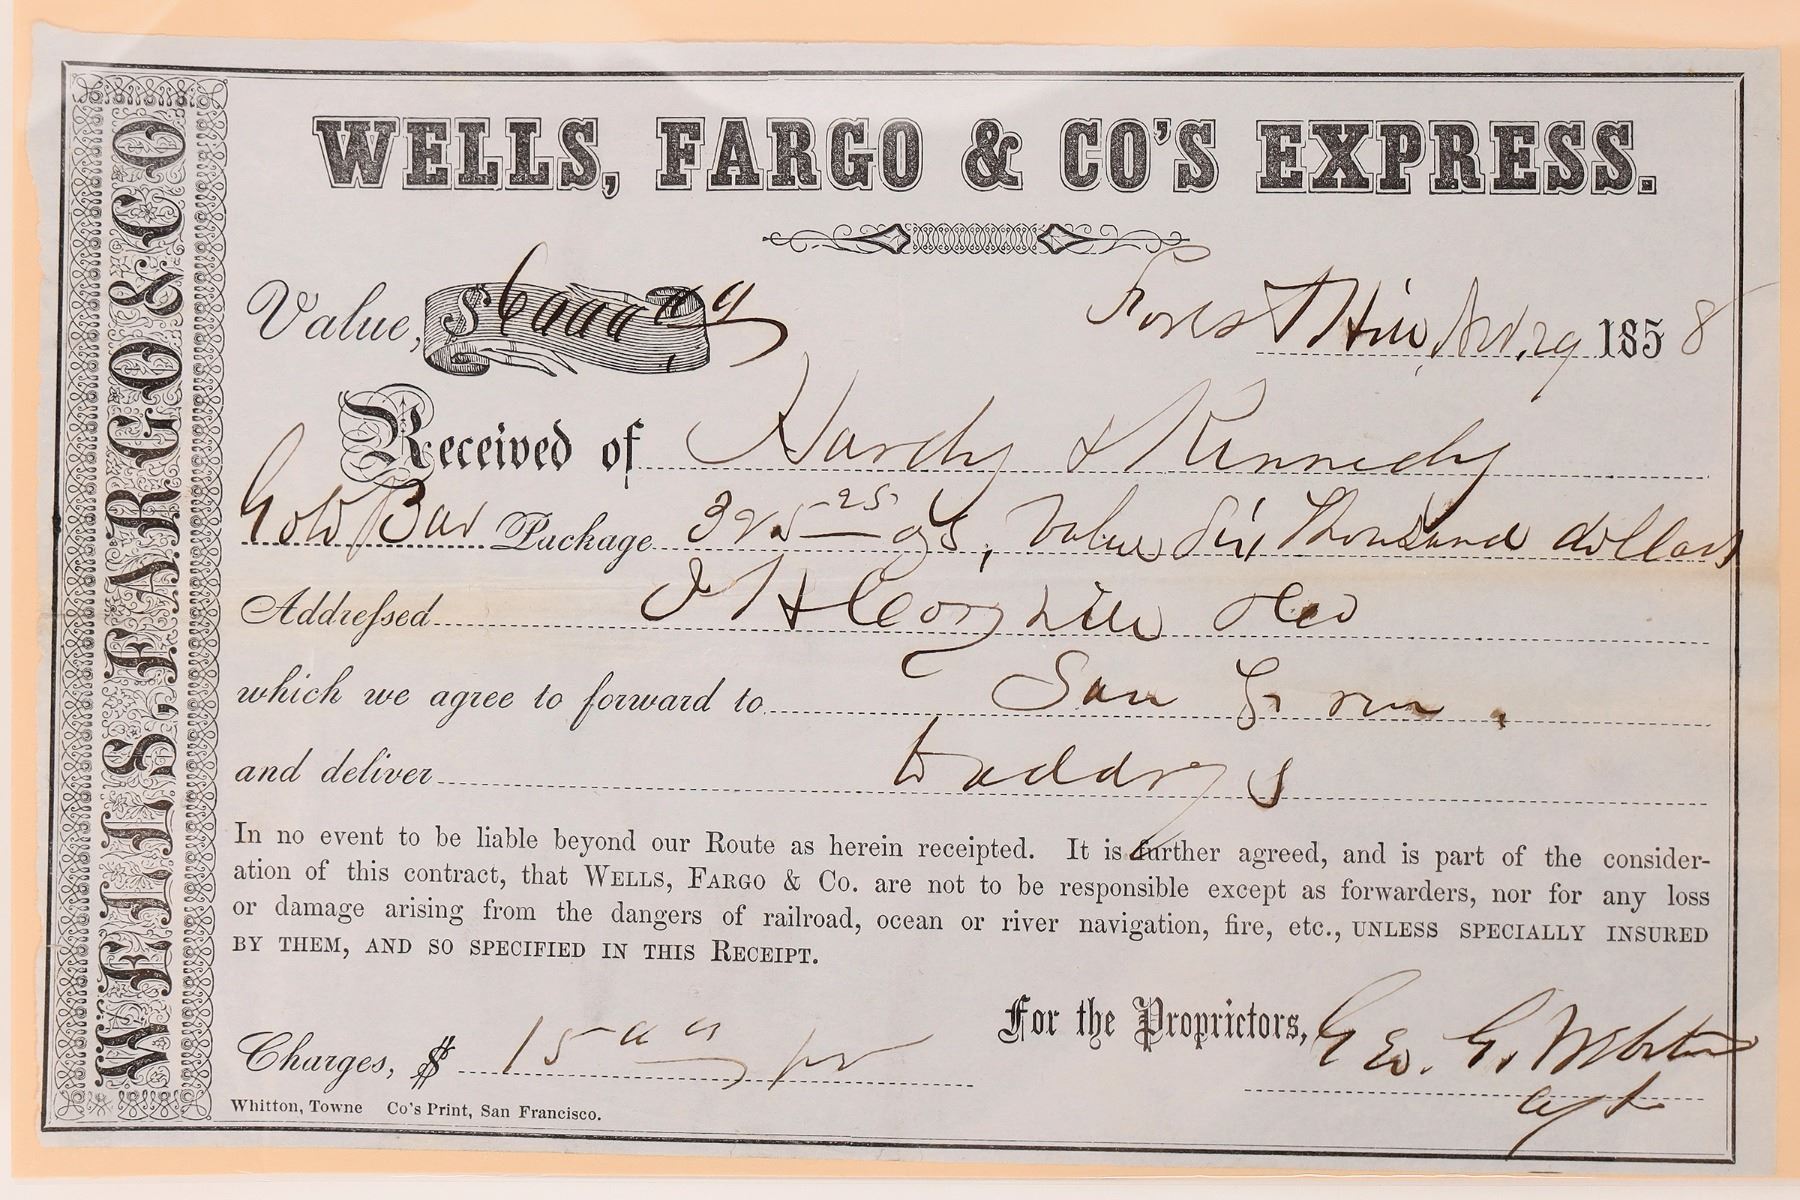 WELLS, FARGO & CO
WELLS, FARGO & CO'S EXPRESS.
Value, $6000 00
Forest Hill, 29 1858
Received of Hardy & Kennedy
Gold Bar Package 325 25 ozs, Value Six Thousand dollars
Addressed J H Coghill &Co
which we agree to forward to San Fran.
and deliver to address
In no event to be liable beyond our Route as herein receipted. It is further agreed, and is part of the consider-
ation of this contract, that WELLS, FARGO & Co. are not to be responsible except as forwarders, nor for any loss
or damage arising from the dangers of railroad, ocean or river navigation, fire, etc., UNLESS SPECIALLY INSURED
BY THEM, AND SO SPECIFIED IN THIS RECEIPT.
For the Proprietors, Geo. G. Webster
Agt
Charges, $ 15 00
Whitton, Towne Co's Print, San Francisco.